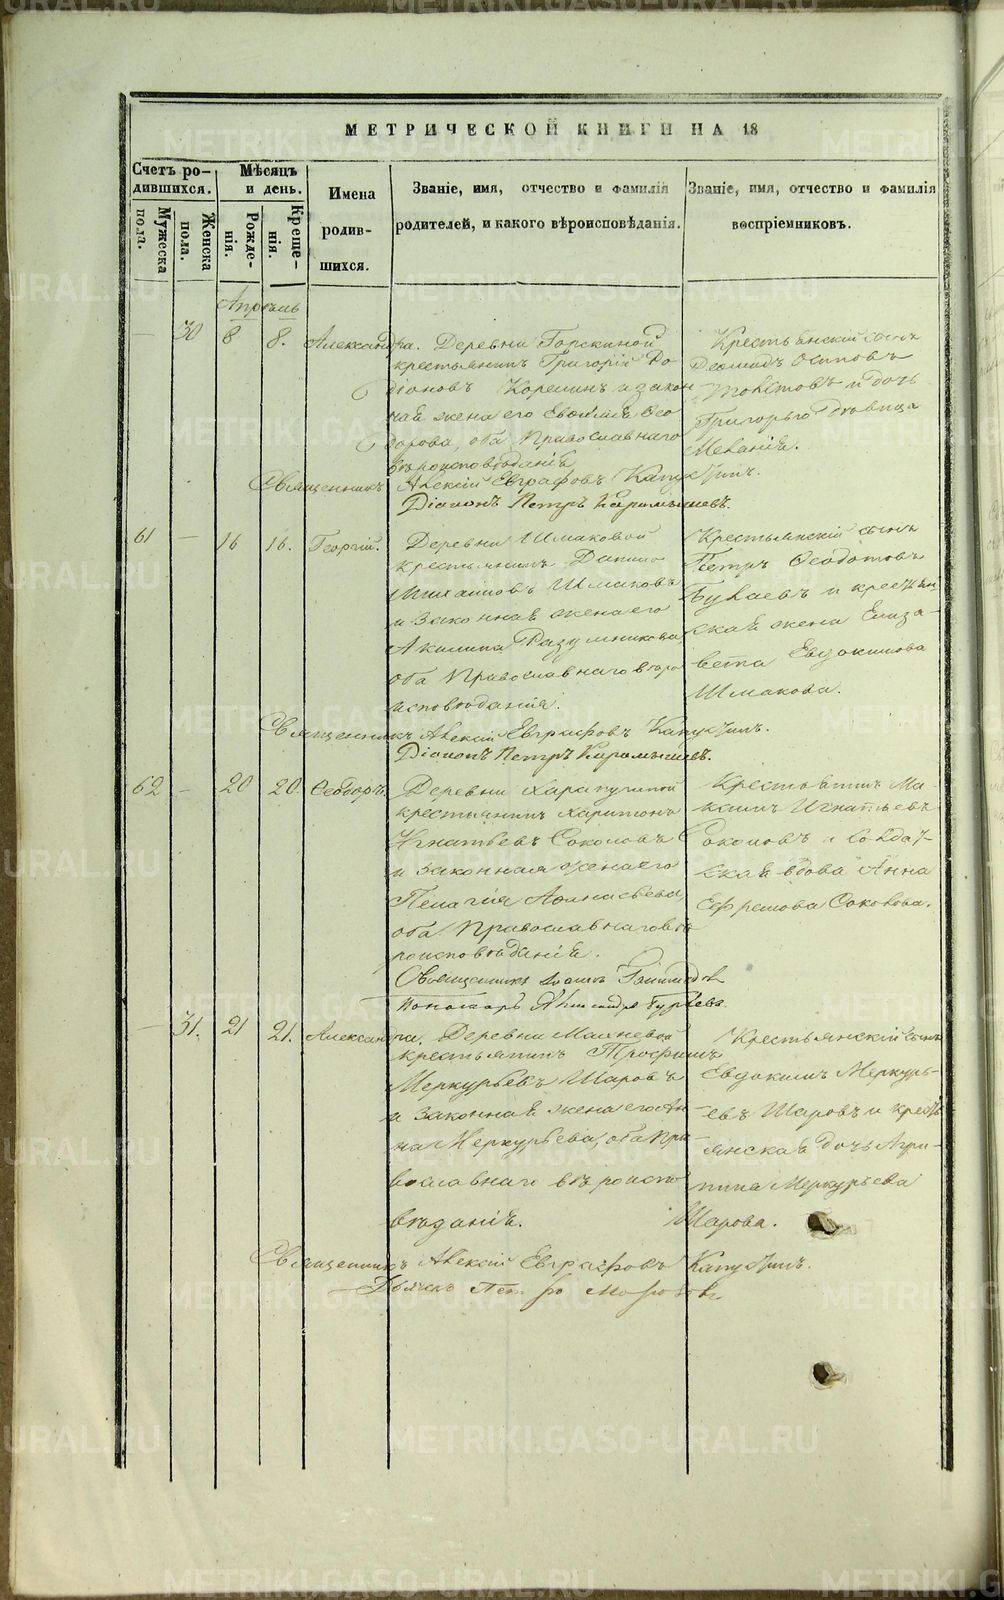 МЕТРИЧЕСКОЙ КНИГИ НА 18
Счетъ ро-
дившихся.
Мѣсяцъ
и день.
Имена
родив-
шихся.
Званіе, имя, отчество и фамилія
родителей, и какого вѣроисповѣданія.
Званіе, имя, отчество и фамилія
воспріемниковъ.
Мужеска
пола.
Женска
пола.
Рожде-
нія.
Креще-
нія.
Апрѣль
— 30 8 8. Александра.
Деревни Горскиной
крестьянинъ Григорій Ро-
діоновъ Корелинъ и закон
ная жена его Евѳимія Ѳео
дорова, оба Православнаго
вѣроисповѣданія
Крестьянскій сынъ
Діомидъ Осиповъ
и дочь
Григорьго дѣвица
Меланія.
Священникъ Алексій Евграфовъ Капустинъ.
Діаконъ Петръ Карамышевъ.
61 — 16 16. Георгій.
Деревни Шмаковой
крестьянинъ Данило
Михаиловъ Шмаковъ
и законная жена его
Акилина Разумникова
оба Православнаго вѣро
исповѣданія.
Крестьянскій сынъ
Петръ Ѳеодотовъ
Булаевъ и крестьян
ская жена Елиза-
вета Евдокимова
Шмакова.
Священникъ Алексій Евграфовъ Капустинъ.
Діаконъ Петръ Карамышевъ.
62 — 20 20. Ѳеодоръ.
Деревни
крестьянинъ Харитонъ
Игнатьевъ Соколовъ
и законная жена его
Пелагія Аѳанасьева,
оба Православнаго вѣ
роисповѣданія.
Крестьянинъ Ма-
ксимъ Игнатьевъ
Соколовъ и солдат-
ская вдова Анна
Ефремова Соколова.
Священникъ Іоаннъ
Пономарь Александръ Гурьевъ.
— 31. 21 21. Александра.
Деревни Махневой
крестьянинъ Трофимъ
Меркурьевъ Шаровъ
и законная жена его Ан
на Меркурьева, оба Пра-
вославнаго вѣроиспо
вѣданія.
Крестьянскій сынъ
Евдокимъ Меркурь-
евъ Шаровъ и кресть
янская дочь Агри-
пина Меркурьева
Шарова.
Священникъ Алексій Евграфовъ Капустинъ.
Дьячекъ Петръ Морозовъ
METRIKI.GASO-URAL.RU